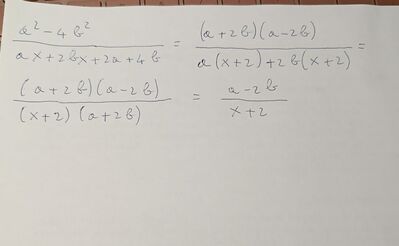 (a² - 4b²)/(ax + 2bx + 2a + 4b) = ((a + 2b)(a - 2b))/(a(x + 2) + 2b(x + 2)) =
((a + 2b)(a - 2b))/((x + 2)(a + 2b)) = (a - 2b)/(x + 2)